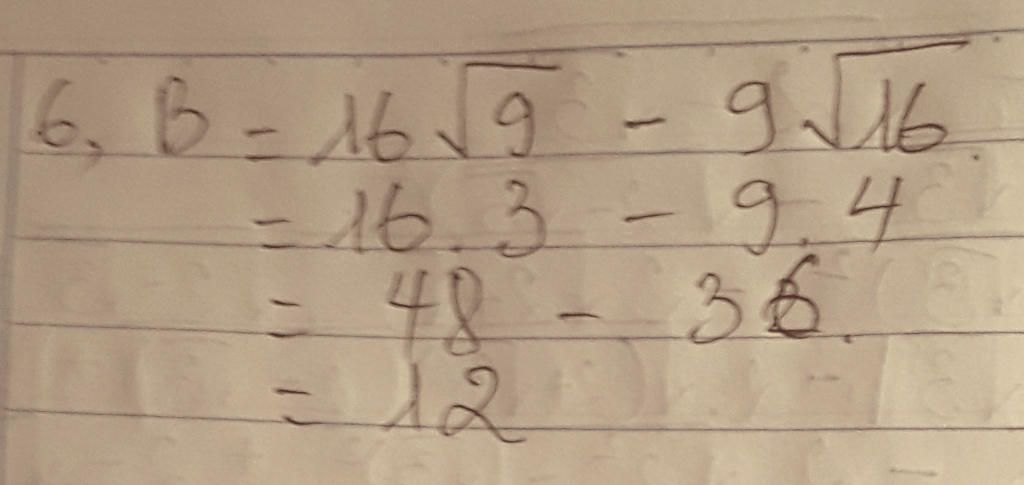 6, B = 16√9 - 9√16.
= 16.3 - 9.4
= 48 - 36.
= 12